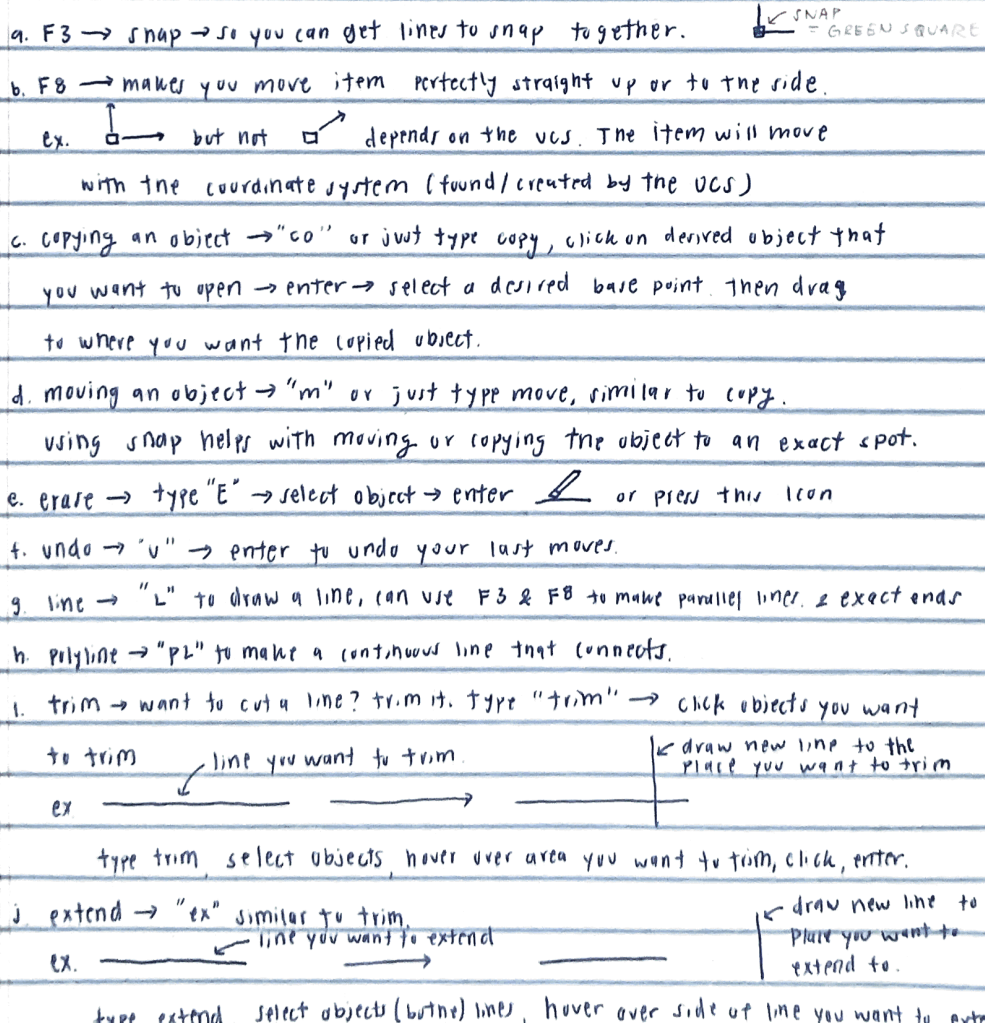 a. F3 → snap → so you can get lines to snap together.
SNAP
= GREEN SQUARE
b. F8 → makes you move item perfectly straight up or to the side.
ex. but not depends on the UCS. The item will move
with the coordinate system (found/created by the UCS)
c. copying an object → "co" or just type copy, click on desired object that
you want to open → enter → select a desired base point. Then drag
to where you want the copied object.
d. moving an object → "m" or just type move, similar to copy.
using snap helps with moving or copying the object to an exact spot.
e. erase → type "E" → select object → enter or press this icon
f. undo → "u" → enter to undo your last moves.
g. line → "L" to draw a line, can use F3 & F8 to make parallel lines. & exact ends
h. polyline → "PL" to make a continuous line that connects.
i. trim → want to cut a line? trim it. type "trim" → click objects you want
to trim
line you want to trim.
draw new line to the
place you want to trim
ex
type trim, select objects, hover over area you want to trim, click, enter.
j. extend → "ex" similar to trim.
line you want to extend
draw new line to
place you want to
extend to.
ex.
type extend select objects (both) lines, hover over side of line you want to